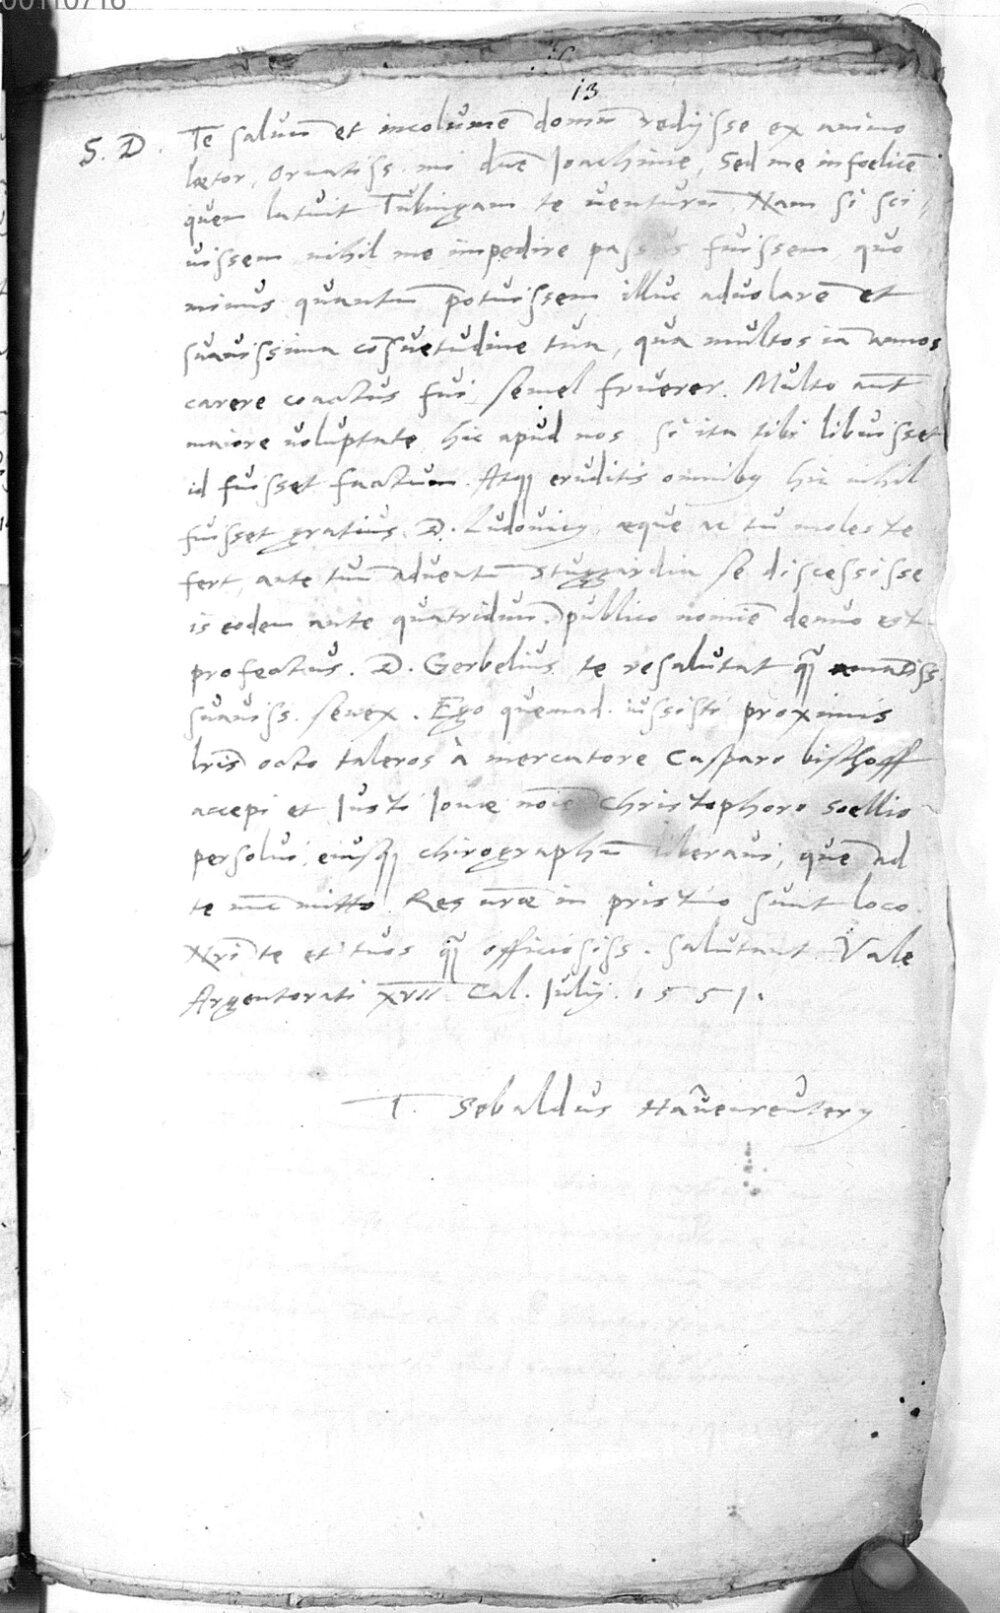 00110716
13
S. D. Te salvū et incolumē domū redijsse ex animo
lætor, Ornatiss. mi dn̄e Ioachime, Sed me infoelicē
quem latuit Tubingam te venturū. Nam si sci,
vissem nihil me impedire passus fuissem quo
minus quantū potuissem illuc advolarē et
suavissima cōsuetudine tua, qua multos iā annos
carere coactus fui semel fruerer. Multo aūt
maiore voluptate hic apud nos si ita tibi libuisset
id fuisset factum. Atqȝ eruditis omnibꝰ hic nihil
fuisset gratius. D. Ludovicꝰ æque ac tu moleste
fert, ante tuū adventū Stuggardia se discessisse
is eodem ante quatriduū publico nomiē denuo est
profectus. D. Gerbelius te resalutat qꝫ amātiss.
suaviss. senex. Ego quemad. iussisti proximis
lr̄is octo taleros à mercatore Casparo bischoff
accepi et Iusti Ionæ noīe Christophoro Soellio
persolvi, eiusqȝ chirographū liberavi, quē ad
te nūc mitto. Res n̄ræ in pristino sunt loco.
Nr̄i te et tuos qꝫ officiosiss. salutant. Vale
Argentorati XVII Cal. Iulij. 1551.
T. Sebaldus Hawenreuterꝰ